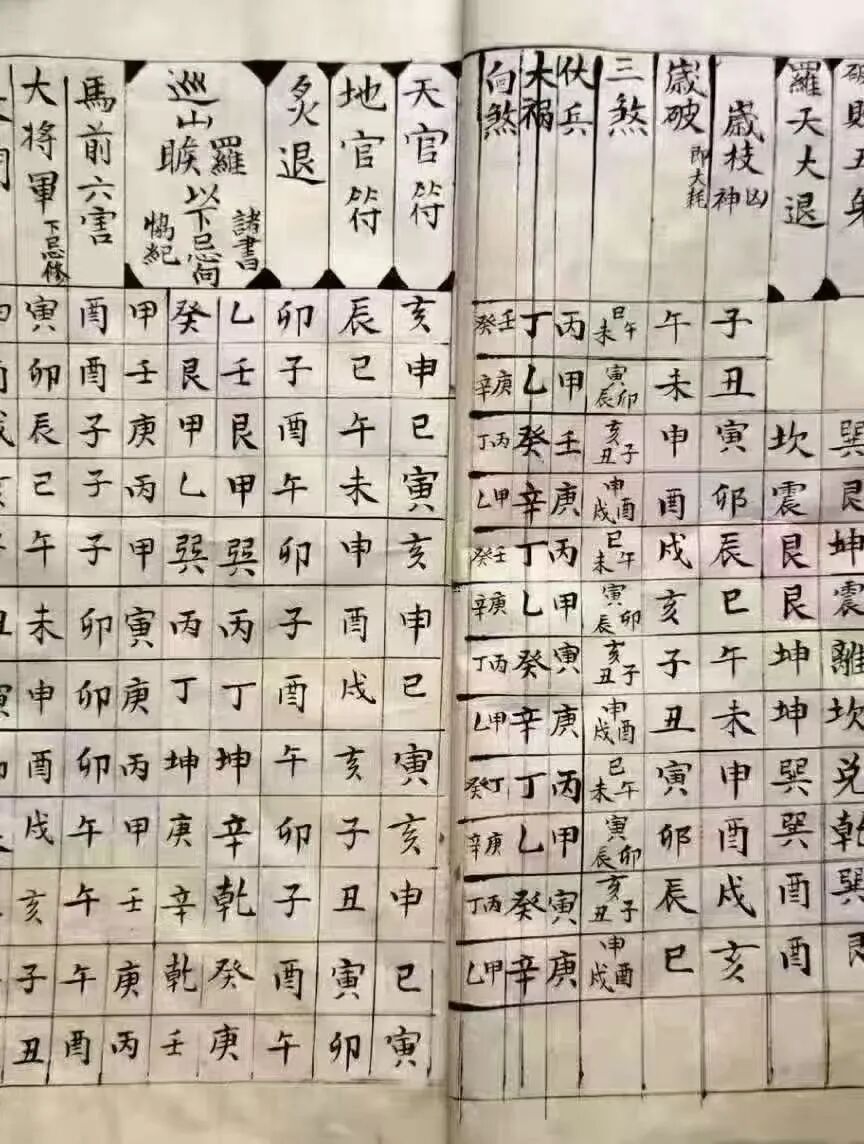 敗五
巽
艮
坤
震
離
坎
兌
乾
巽
羅天大退
坎
震
艮
艮
坤
坤
巽
巽
酉
酉
歲枝神凶
子
丑
寅
卯
辰
巳
午
未
申
酉
戌
亥
歲破即大耗
午
未
申
酉
戌
亥
子
丑
寅
卯
辰
巳
三煞
巳午未
寅卯辰
亥子丑
申酉戌
巳午未
寅卯辰
亥子丑
申酉戌
巳午未
寅卯辰
亥子丑
申酉戌
伏兵
丙
甲
壬
庚
丙
甲
寅
庚
丙
甲
寅
庚
大禍
丁
乙
癸
辛
丁
乙
癸
辛
丁
乙
癸
辛
向煞
壬癸
庚辛
丙丁
甲乙
壬癸
庚辛
丙丁
甲乙
丁癸
庚辛
丙丁
甲乙
天官符
亥
申
巳
寅
亥
申
巳
寅
亥
申
巳
寅
地官符
辰
巳
午
未
申
酉
戌
亥
子
丑
寅
卯
炙退
卯
子
酉
午
卯
子
酉
午
卯
子
酉
午
巡山羅睺
以下忌向
諸書
乙
壬
艮
甲
巽
丙
丁
坤
辛
乾
癸
庚
癸
艮
甲
乙
巽
丙
丁
坤
庚
辛
乾
壬
恊紀
甲
壬
庚
丙
甲
寅
庚
丙
甲
壬
庚
丙
馬前六害
酉
酉
子
子
子
卯
卯
卯
午
午
午
酉
大將軍下忌修
寅
卯
辰
巳
午
未
申
酉
戌
亥
子
丑